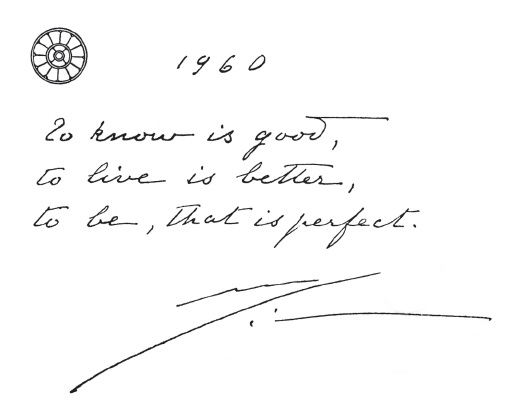 1960
To know is good,
to live is better,
to be, that is perfect.